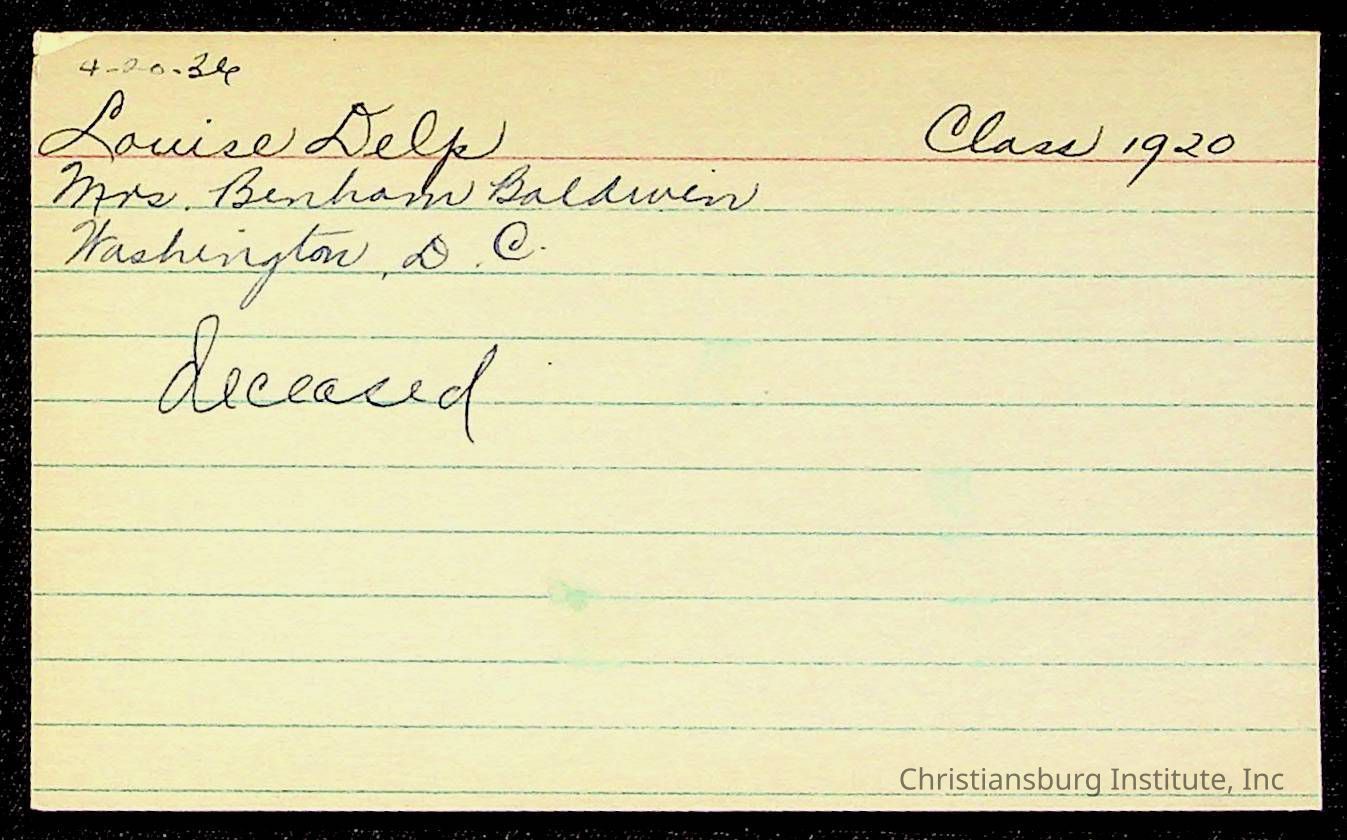 4-20-36
Louise Delp Class 1920
Mrs. Benham Baldwin
Washington, D.C.
deceased
Christiansburg Institute, Inc